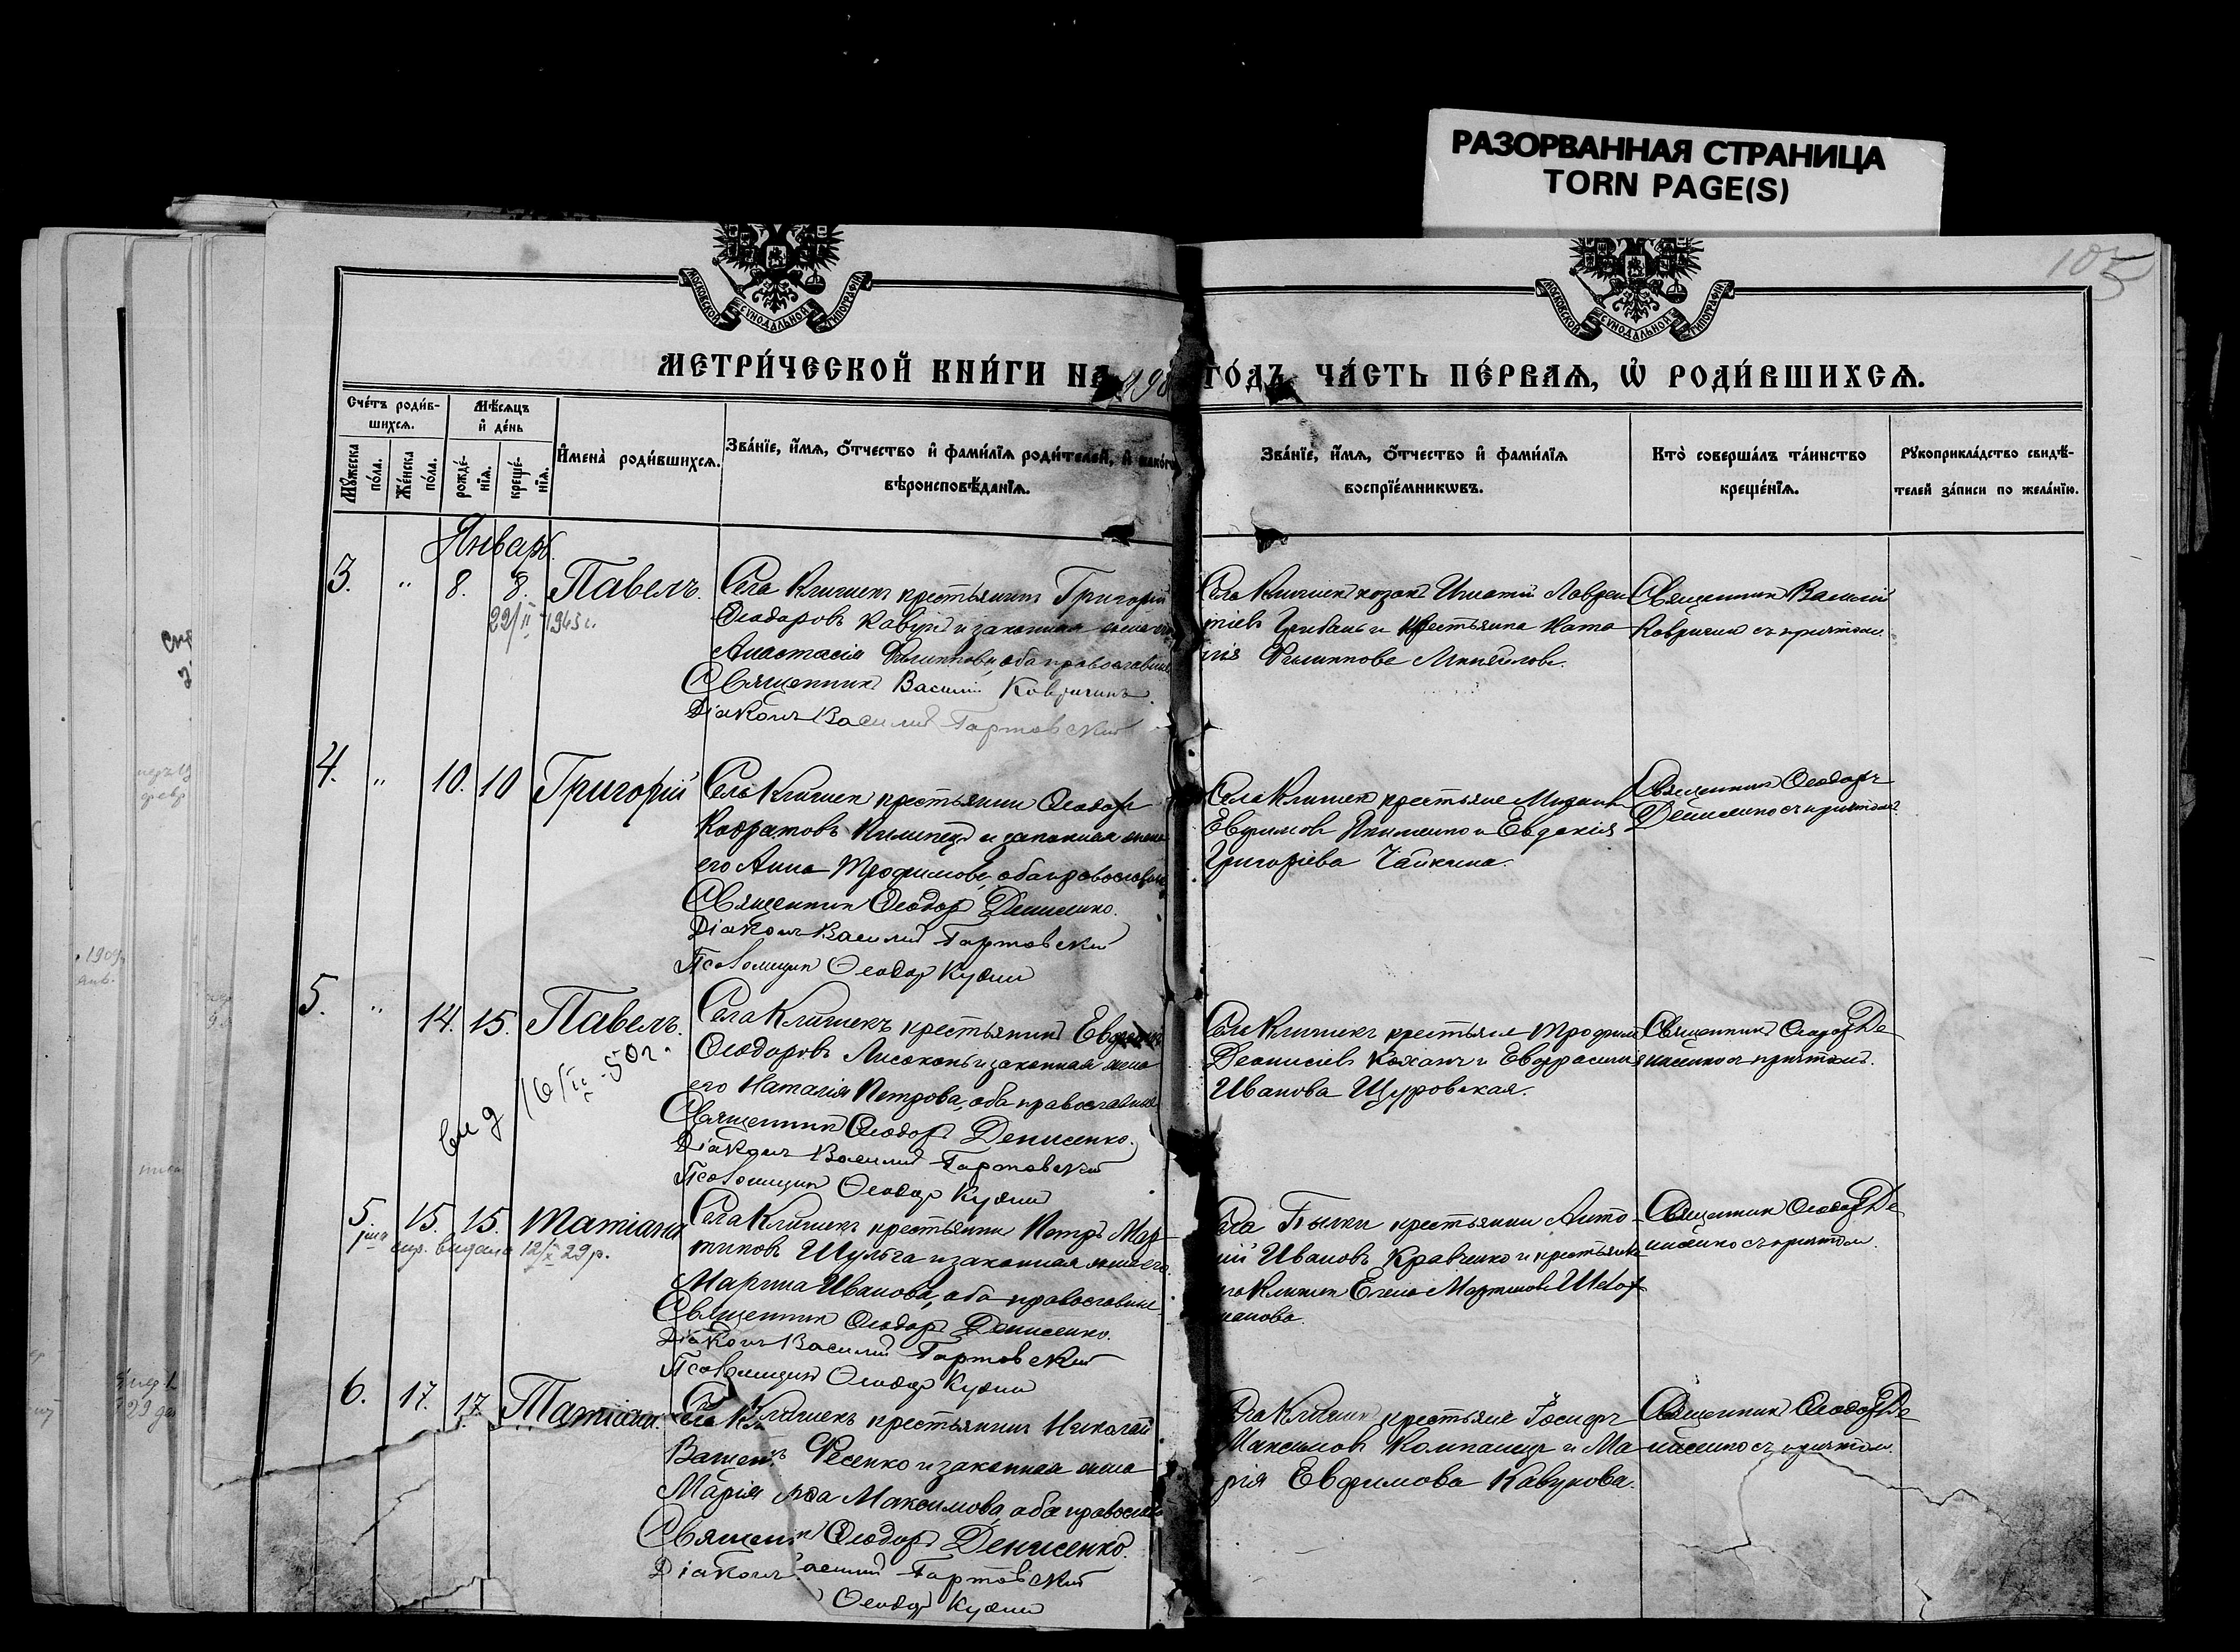 РАЗОРВАННАЯ СТРАНИЦА
TORN PAGE(S)
105
МОСКОВСКОЙ СѴНОДАЛЬНОЙ ТИПОГРАФІИ
МОСКОВСКОЙ СѴНОДАЛЬНОЙ ТИПОГРАФІИ
МЕТРИ́ЧЕСКОЙ КНИ́ГИ НА 1908 ГО́ДЪ ЧА́СТЬ ПЕ́РВАѦ, Ѽ РОДИ́ВШИХСѦ.
Сче́тъ роди́в-
шихсѧ.
Мꙋ́жеска по́ла.
Же́нска по́ла.
Мѣ́сѧцъ
и҆ де́нь
рожде́-
нїѧ.
креще́-
нїѧ.
И҆мена̀ роди́вшихсѧ.
Зва́нїе, и҆́мѧ, ѻ҆́тчество и҆ фами́лїѧ роди́телей, и҆ како́гѡ
вѣроисповѣ́данїѧ.
Зва́нїе, и҆́мѧ, ѻ҆́тчество и҆ фами́лїѧ
воспрїе́мникѡвъ.
Кто̀ соверша́лъ та́инство
креще́нїѧ.
Рꙋкоприкла́дство свидѣ́-
телей за́писи по жела́нїю.
Январь.
3. " 8. 8. Павелъ.
Села Клишекъ крестьянинъ Григорій
Ѳеодоровъ Кавунъ и законная жена его
Анастасія Филиппова, оба православные
Священникъ Василій Ковригинъ.
Діаконъ Василій Гартовский
Села Клишекъ козакъ Игнатій Лаврен
тіевъ и крестьянка Ната
лія Филиппова
Священникъ Василій
Ковригинъ съ причтомъ.
22/II 1943 г.
4. " 10. 10 Григорій
Села Клишекъ крестьянинъ Ѳеодоръ
Кодратовъ и законная жена
его Анна Трофимова, оба православные
Священникъ Ѳеодоръ Денисенко.
Діаконъ Василий Гартовский
Псаломщикъ Ѳеодоръ
Села Клишекъ крестьяне
Евфимовъ и Евдокія
Григоріева Чайкина.
Священникъ Ѳеодоръ
Денисенко съ причтомъ.
5. " 14. 15. Павелъ.
Села Клишекъ крестьянинъ
Ѳеодоровъ Лисоконь и законная жена
его Наталія Петрова, оба православные
Священникъ Ѳеодоръ Денисенко.
Діаконъ Василий Гартовский
Псаломщикъ Ѳеодоръ
Села Клишекъ крестьяне Трофимъ
Деонисіевъ Коханъ и Евфросинія
Иванова Щуровская.
Священникъ Ѳеодоръ Де
нисенко съ причтомъ.
вид 16/II-50 г.
5 15. 15. Татіана
Села Клишекъ крестьянинъ Петръ Мар
тиновъ Шульга и законная жена его
Марина Иванова, оба православные
Священникъ Ѳеодоръ Денисенко.
Діаконъ Василий Гартовский
Псаломщикъ Ѳеодоръ
крестьянинъ Анто
ній Ивановъ Кравченко и крестьянка
села Клишекъ Елена Мартинова
Священникъ Ѳеодоръ Де
нисенко съ причтомъ.
видано 12/X 29 р.
6. 17. 17. Татіана.
Села Клишекъ крестьянинъ Николай
Фесенко и законная жена
Марія Максимова, оба православные
Священникъ Ѳеодоръ Денисенко.
Діаконъ Василий Гартовский
Ѳеодоръ
Села Клишекъ крестьяне Іосифъ
Максимовъ Компанецъ и Ма
рія Евфимова Кавунова.
Священникъ Ѳеодоръ Де
нисенко съ причтомъ.